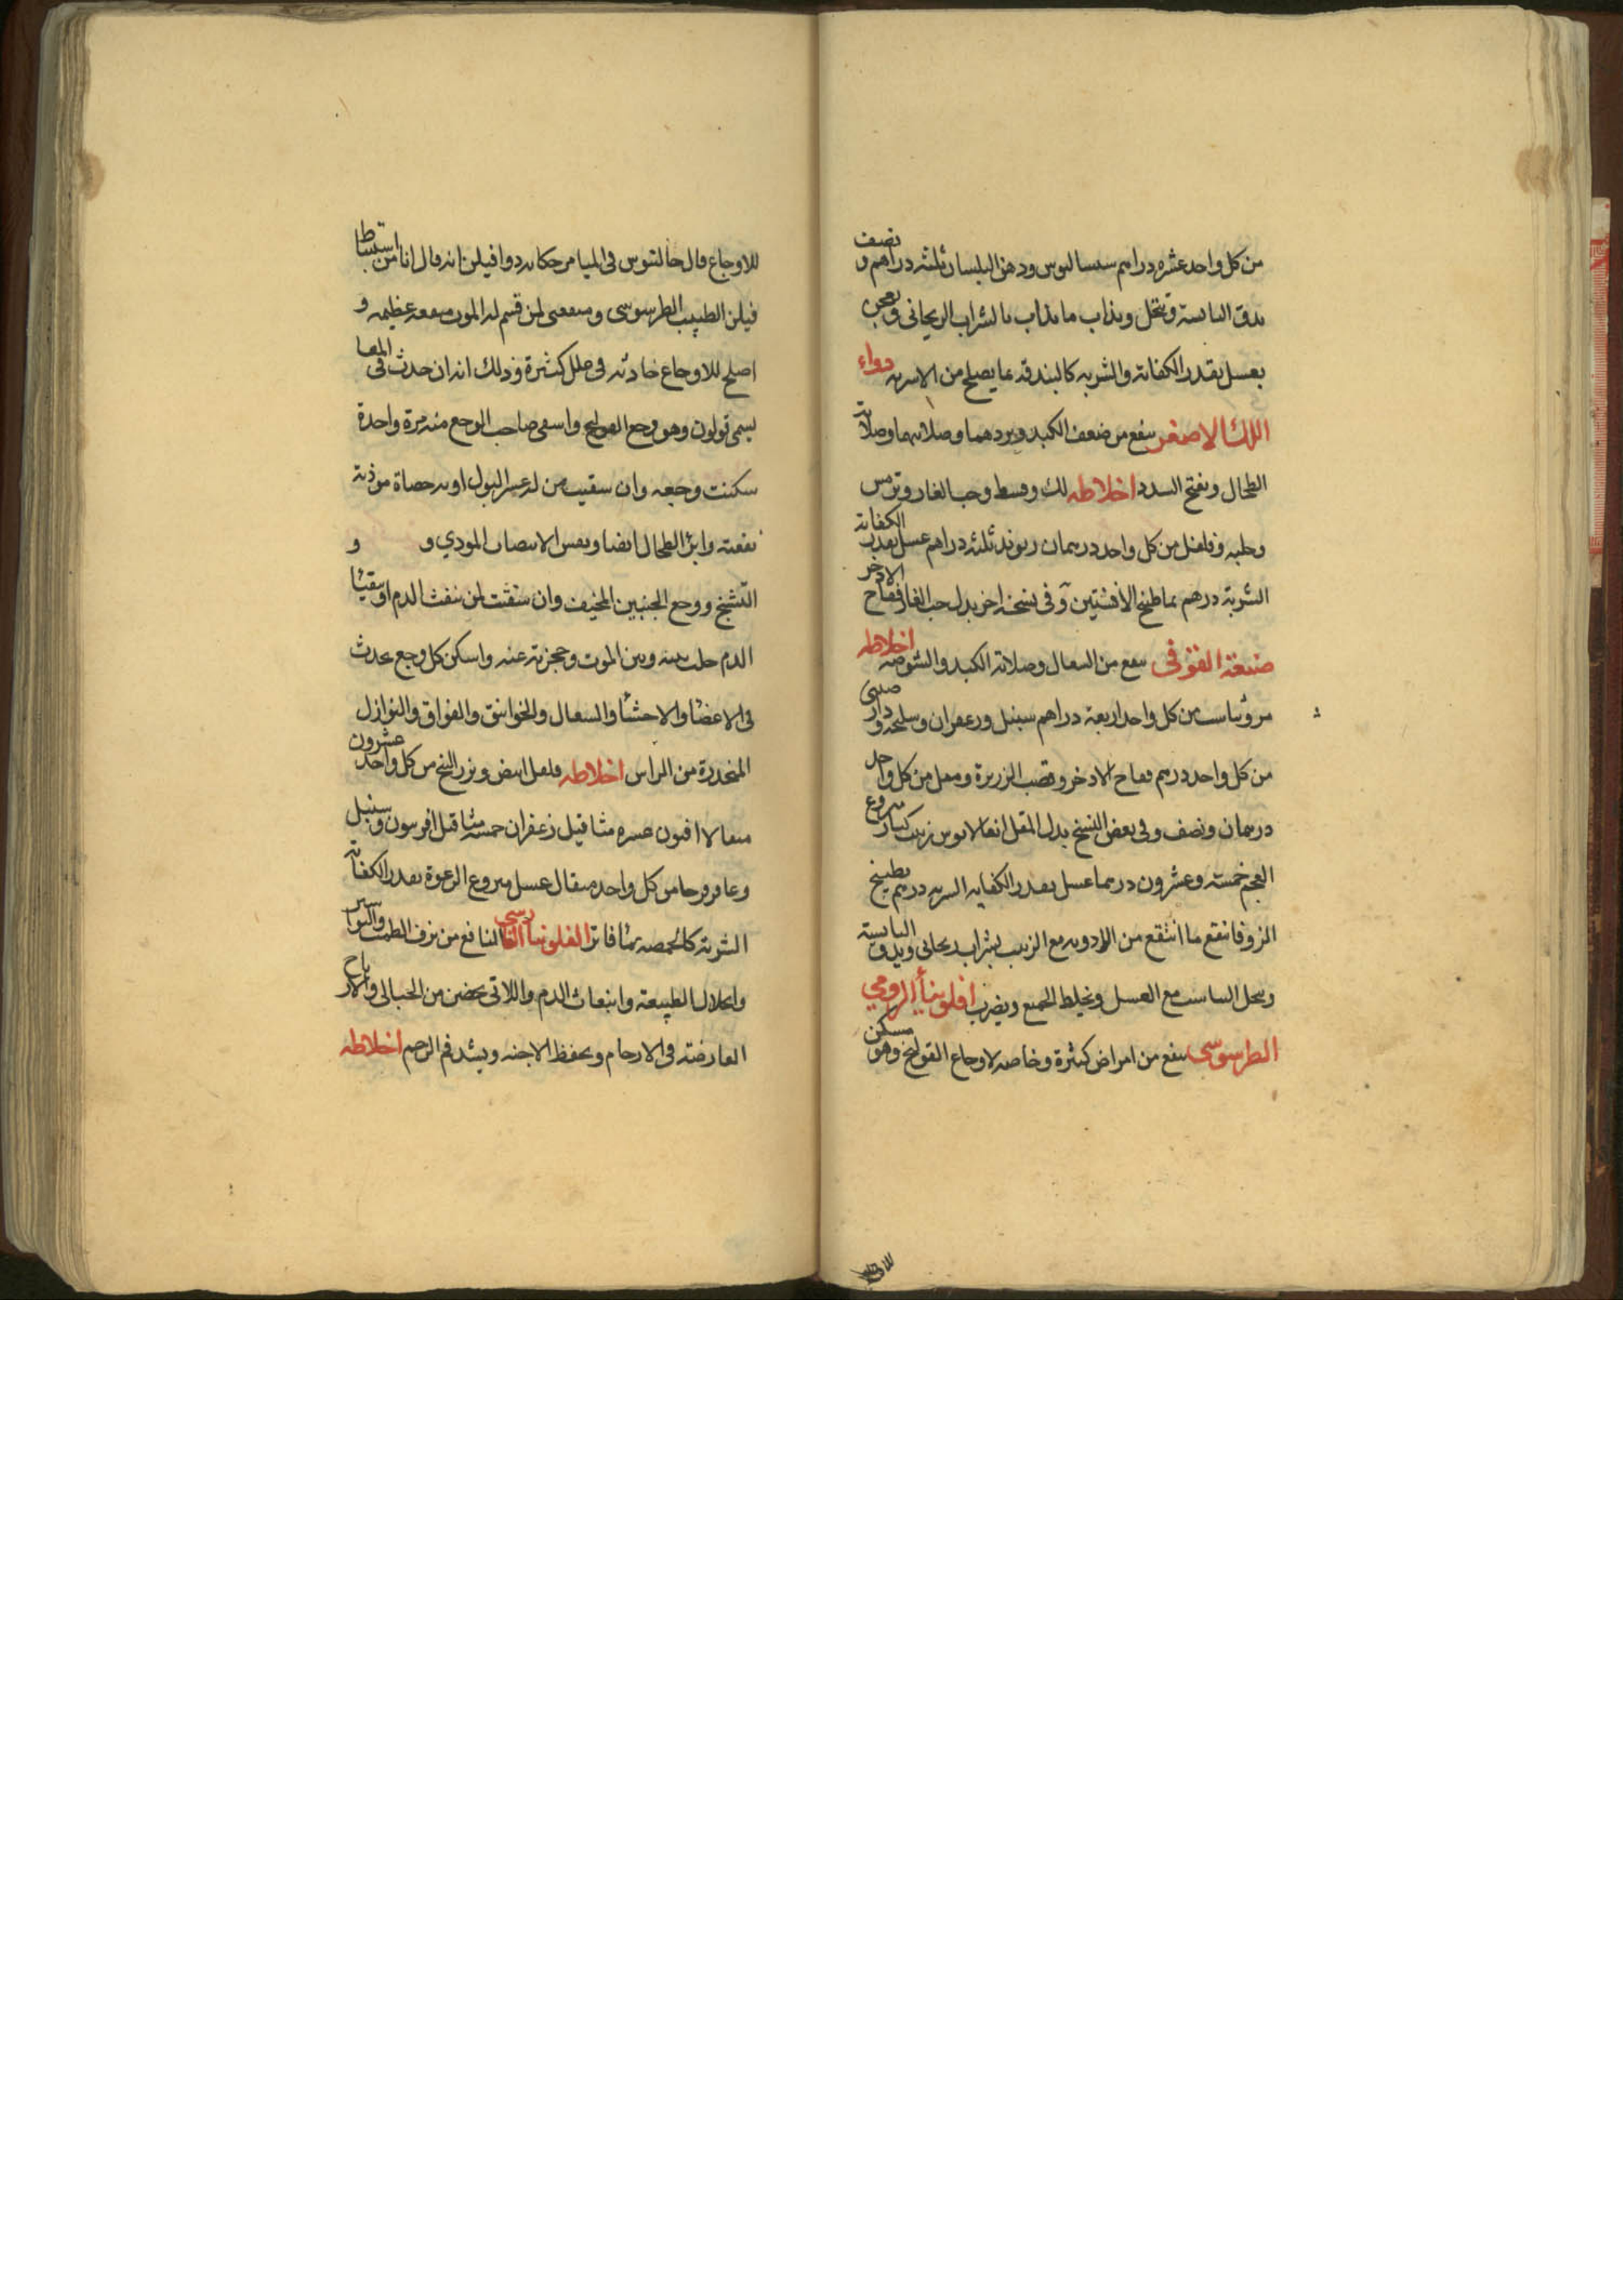 من كل واحد عشره دراهم سيساليوس ودهن البلسان ثلثه دراهم ونصف
يدق اليابسة وينخل ويذاب ما يذاب بالشراب الريحاني ويعجن
بعسل بقدر الكفاية والشربه كالبندقه بما يصلح من الاشربه دواء
اللك الاصغر ينفع من ضعف الكبد وبردهما وصلابتهما وصلابة
الطحال ويفتح السدد اخلاطه لك وقسط وحب الغار وترمس
وحلبه وفلفل من كل واحد درهمان ريوند ثلثه دراهم عسل بقدر الكفاية
الشربة درهم بماطبيخ الافسنتين وفي نسخة اخر بدل حب الغار فقاح الاذخر
صنعة الفوفي ينفع من السعال وصلابة الكبد والشوصه اخلاطه
من كل واحد اربعة دراهم سنبل وزعفران وسليخه ودار صيني
من كل واحد درهم فقاح الاذخر وقصب الزريرة ومقل من كل واحد
درهمان ونصف وفي بعض النسخ بدل المقل زبيب كبار منزوع
العجم خمسة وعشرون درهما عسل بقدر الكفايه الشربه درهم بطبيخ
الزوفا انقع ما انتقع من الادويه مع الزبيب بشراب ريحاني ويدق اليابسة
مع العسل ويخلط الجميع ويضرب افلونيا الرومي
الطرسوسي ينفع من امراض كثيرة وخاصه لاوجاع القولنج وهو مسكن
للاوجاع قال جالينوس في الميامر حكايه دوا فيلن انه قال انا من استنباط
فيلن الطبيب الطرسوسي ومنفعتي لمن قسم له الموت منفعه عظيمه و
اصلح للاوجاع حادثه في علل كثيرة وذلك انه ان حدث في المعا
يسمى قولون وهو وجع القولنج واسقى صاحب الوجع منه مرة واحدة
سكنت وجعه وان سقيت من له عسر البول او به حصاة موذية
نفعته وابرئ الطحال ايضا ونفس الانتصاب المودي و و
التشنج ووجع الجنبين المخيف وان سقيت لمن ينفث الدم او يتقيأ
الدم حلت بينه وبين الموت وحجزته عنه واسكن كل وجع يحدث
في الاعضا والاحشا والسعال والخوانيق والفواق والنوازل
المنحدرة من الراس اخلاطه فلفل ابيض وبزر البنج من كل واحد عشرون
مثقالا افيون عشره مثاقيل زعفران خمسة مثاقيل افربيون وسنبل
وعاقرقرحا من كل واحد مثقال عسل منزوع الرغوة بقدر الكفاية
الشربة كالحمصه بما فاتر الفلونيا الفارسي النافع من نزف الطمث والبواسير
وانحلال الطبيعة وانبعاث الدم واللاتي يحضن من الحبالى والارياح
العارضة في الارحام ويحفظ الاجنه ويشد فم الرحم اخلاطه